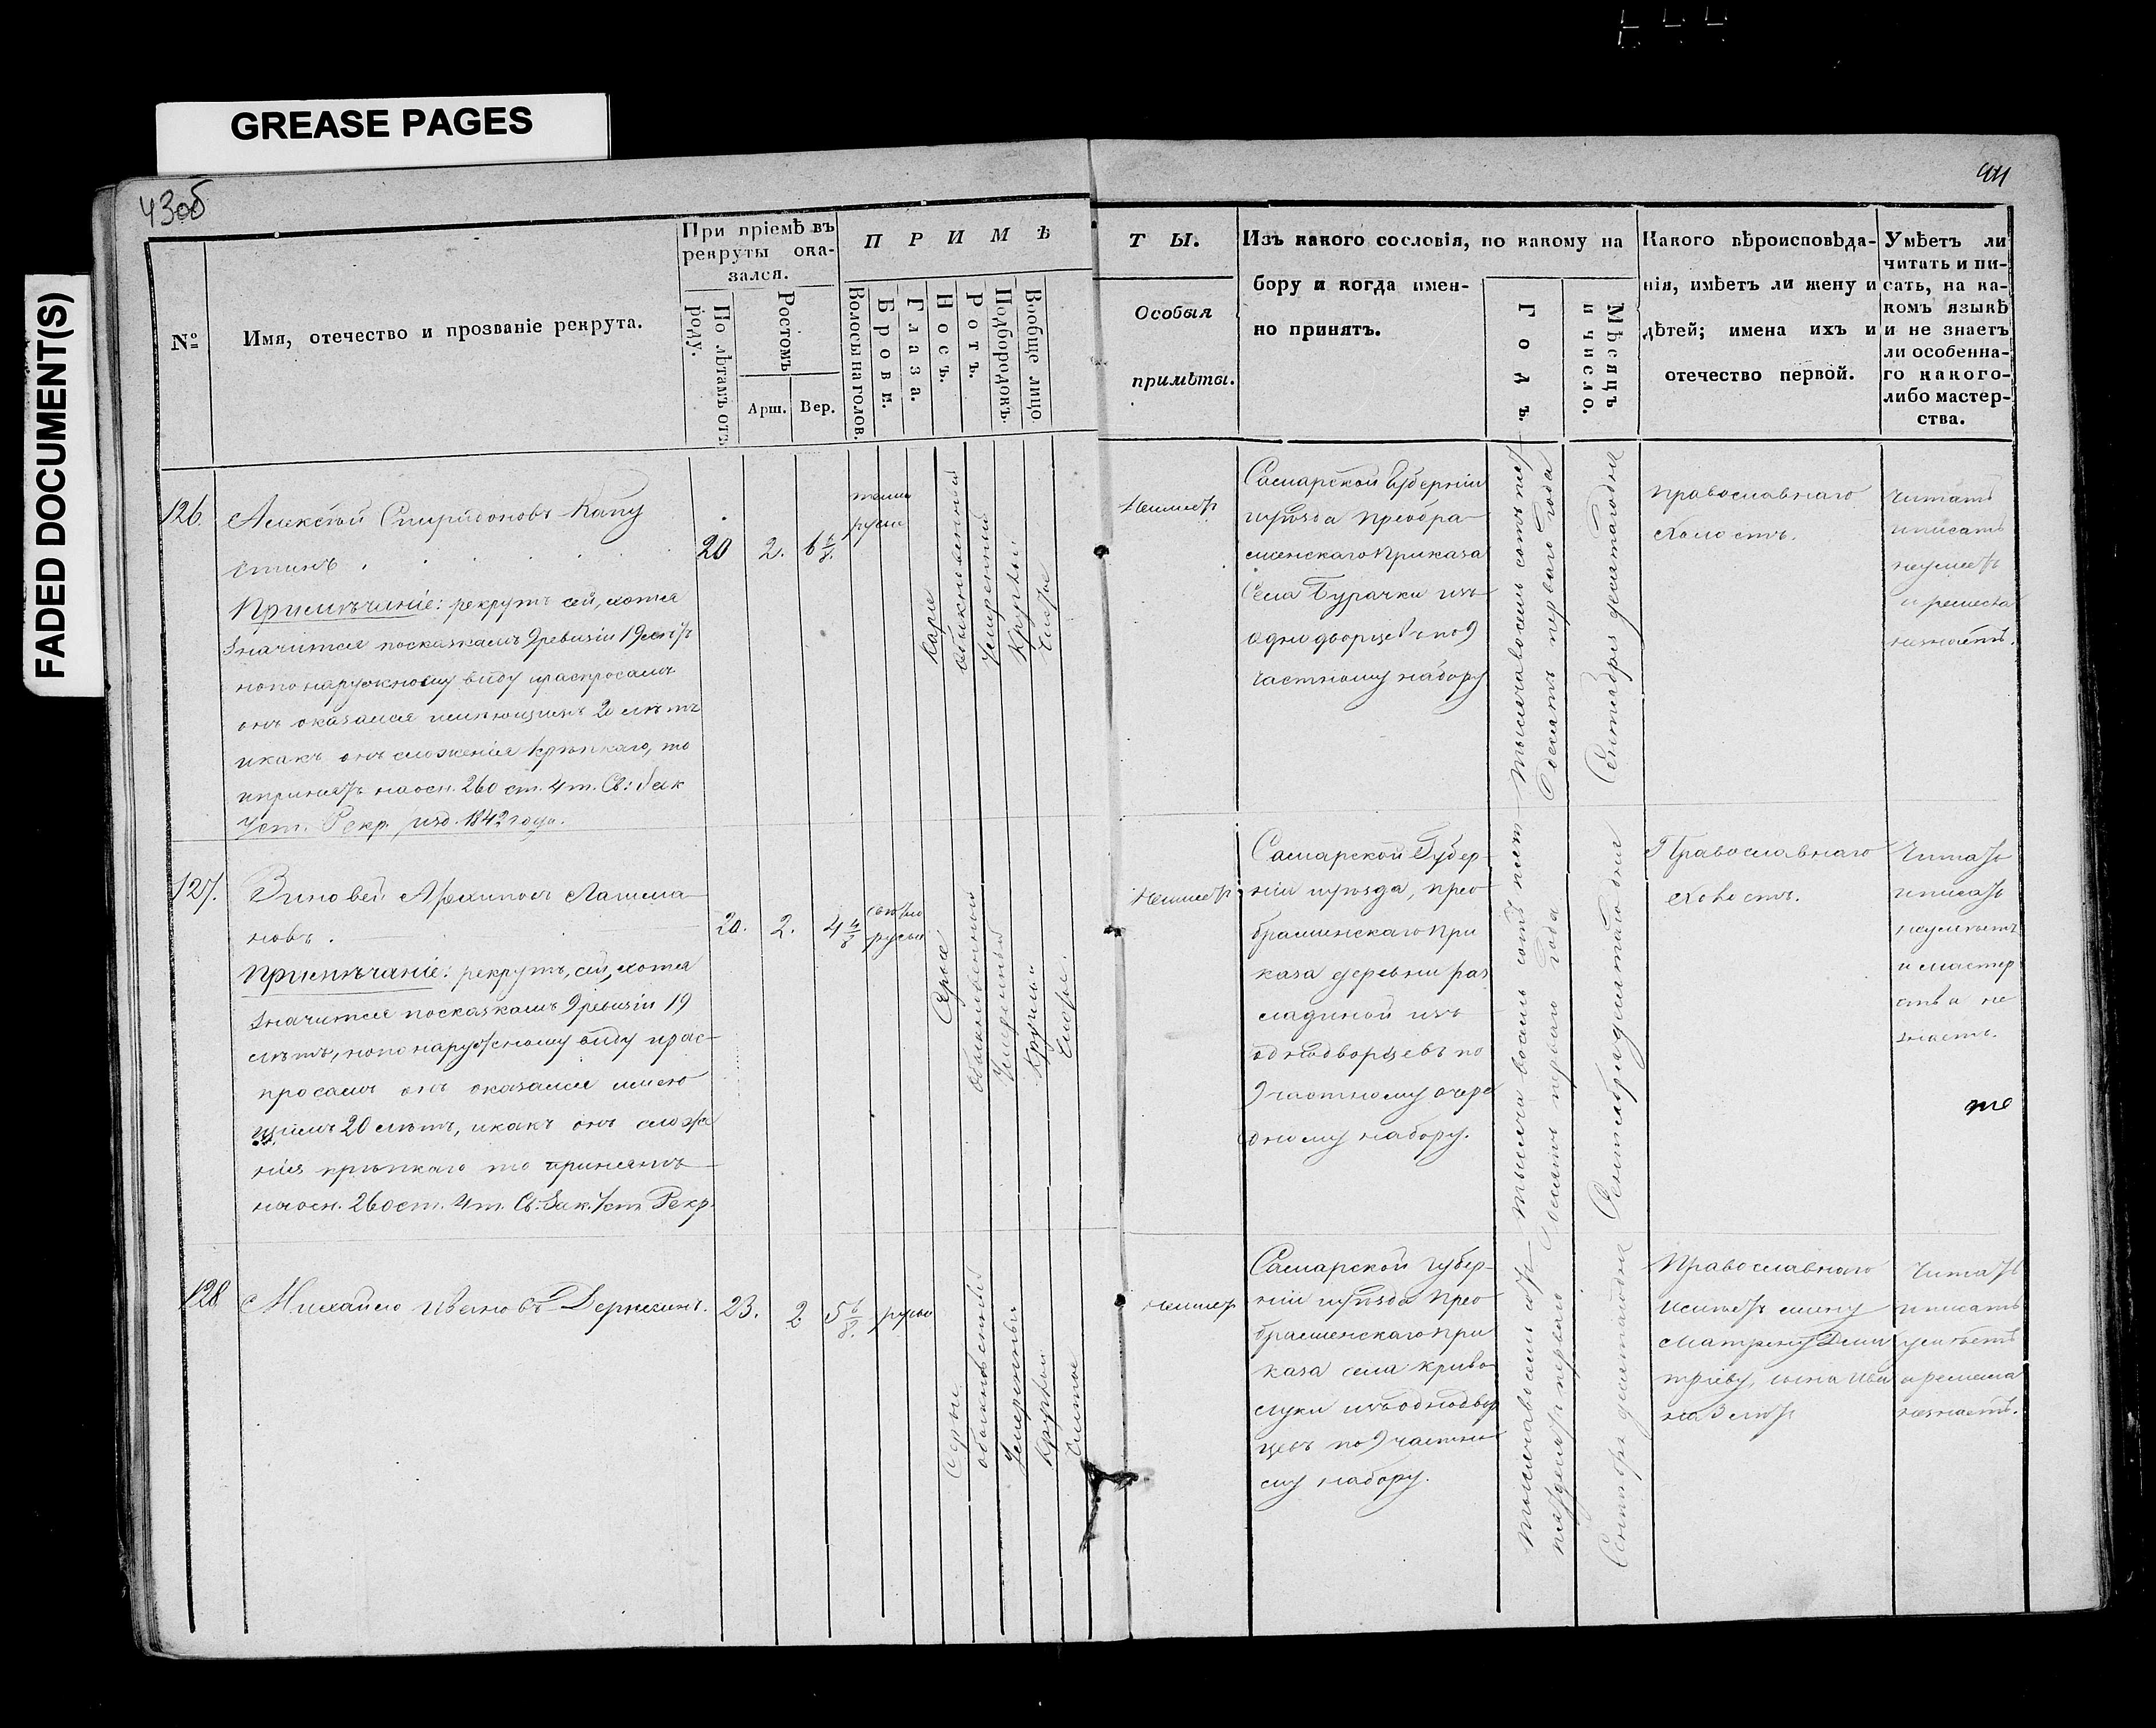 GREASE PAGES
FADED DOCUMENT(S)
43об
44
№
Имя, отечество и прозваніе рекрута.
При пріемѣ въ
рекруты ока-
зался.
По лѣтамъ отъ
роду.
Ростомъ
Арш.
Вер.
П Р И М Ѣ
Волосы на голов.
Брови.
Глаза.
Носъ.
Ротъ.
Подбородокъ.
Вообще лицо.
Т Ы.
Особыя
примѣты.
Изъ какого сословія, по какому на
бору и когда имен-
но принятъ.
Годъ.
Мѣсяцъ
и число.
Какого вѣроисповѣда-
нія, имѣетъ ли жену и
дѣтей; имена ихъ и
отечество первой.
Умѣетъ ли
читать и пи-
сать, на ка-
комъ языкѣ
и не знаетъ
ли особенна-
го какого-
либо мастер-
ства.
126.
Алексѣй Спиридоновъ Капу
стинъ.
Примѣчаніе: рекрутъ сей, хотя
значится посказкамъ 9 ревизіи 19 лѣтъ
но по наружному виду и распросамъ
онъ оказался имѣющимъ 20 лѣтъ
и какъ онъ сложенія крѣпкаго, то
и принятъ на осн. 260 ст. 4 т. Св: Зак
Уст. Рекр. изд. 1842 года.
20
2.
6 6/8.
темно
русые
Каріе
Обыкновенный
Умеренный
Круглый
Чистое
Неимеетъ
Самарской Губерніи
и уѣзда Преобра-
женскаго Приказа
Села Бурачки изъ
однодворцевъ по 9
частному набору
Тысяча восемь сотъ пят
десятъ перваго года
Сентября десятаго дня
Православнаго
Холостъ.
Читать
и писать
неумеетъ
и ремесла
незнаетъ.
127.
Зиновей Архиповъ Лашма-
новъ.
Примѣчаніе: рекрутъ, сей, хотя
значится посказкамъ 9 ревизіи 19
лѣтъ, но по наружному виду и рас-
просамъ онъ оказался имею
щимъ 20 лѣтъ, и какъ онъ сложе
нія крѣпкаго то принятъ
на осн. 260 ст. 4 т. Св: Зак. Уст. Рекр.
20.
2.
4 4/8
светло
русые
Серые
Обыкновенный
Умеренный
Круглый
Чистое.
Неимеетъ
Самарской Губер-
ніи и уѣзда, Прео
браженскаго При
каза деревни Раз
ладиной изъ
однодворцевъ по
9 частному очере
дному набору.
Тысяча восемь сотъ пят
десятъ перваго года
Сентября десятаго дня
Православнаго
Холостъ.
Читать
и писать
неумѣетъ
и мастер
ства не
знаетъ.
те
128
Михайло Ивановъ Дерюжинъ.
23.
2
5 6/8.
русые
Серые
Обыкновенный
Умеренный
Круглый
Чистое
Неимеетъ
Самарской Губер-
ніи и уѣзда Прео
браженскаго При
каза села Криво-
луки изъ однодвор
цевъ по 9 частно
му набору.
Тысяча восемь сотъ
пятдесятъ перваго года
Сентября десятаго дня
Православнаго
имѣетъ жену
Матрену Дми
тріеву, сына Ива
на 3 летъ
Читать
и писать
умѣетъ
а ремесла
незнаетъ.